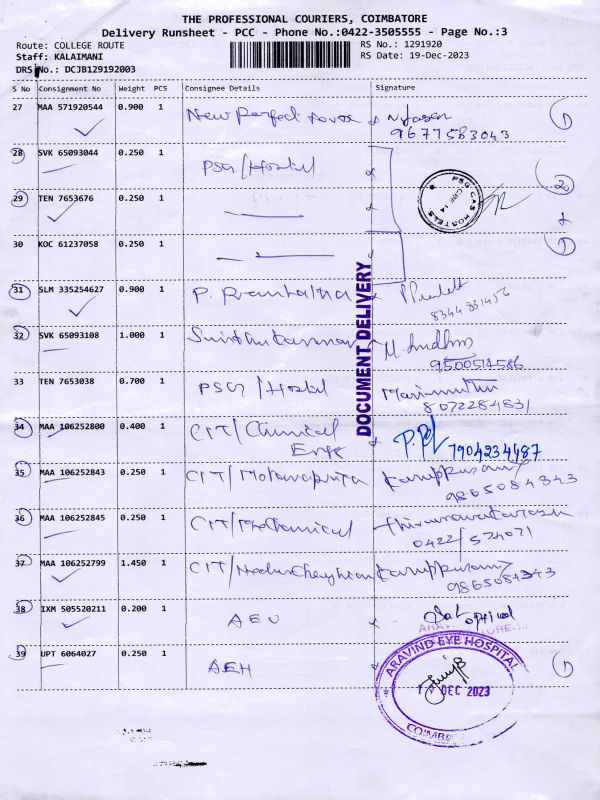 THE PROFESSIONAL COURIERS, COIMBATORE
Delivery Runsheet - PCC - Phone No.:0422-3505555 - Page No.:3
Route: COLLEGE ROUTE RS No.: 1291920
Staff: KALAIMANI RS Date: 19-Dec-2023
DRS No.: DCJB129192003
S No Consignment No Weight PCS Consignee Details Signature
27 MAA 571920544 0.900 1 New Perfect
9677583043
28 SVK 65093044 0.250 1 PSG/Hostel
PSG CAS HOSTELS
CBE 14
29 TEN 7653676 0.250 1
30 KOC 61237058 0.250 1
DOCUMENT DELIVERY
31 SLM 335254627 0.900 1 P.
8344831456
32 SVK 65093108 1.000 1
9500514586
33 TEN 7653038 0.700 1 PSG/Hostel Marimuthu
8072284831
34 MAA 106252800 0.400 1 CIT/Chemical
7904234487
35 MAA 106252843 0.250 1 CIT/ Karuppusamy
9865084343
36 MAA 106252845 0.250 1 CIT/Mechanical Thirunavukarasu
0422/574071
37 MAA 106252799 1.450 1 CIT/ Karuppusamy
9865084343
38 IXM 505520211 0.200 1
39 UPT 6064027 0.250 1 AEH
ARAVIND EYE HOSPITAL
DEC 2023